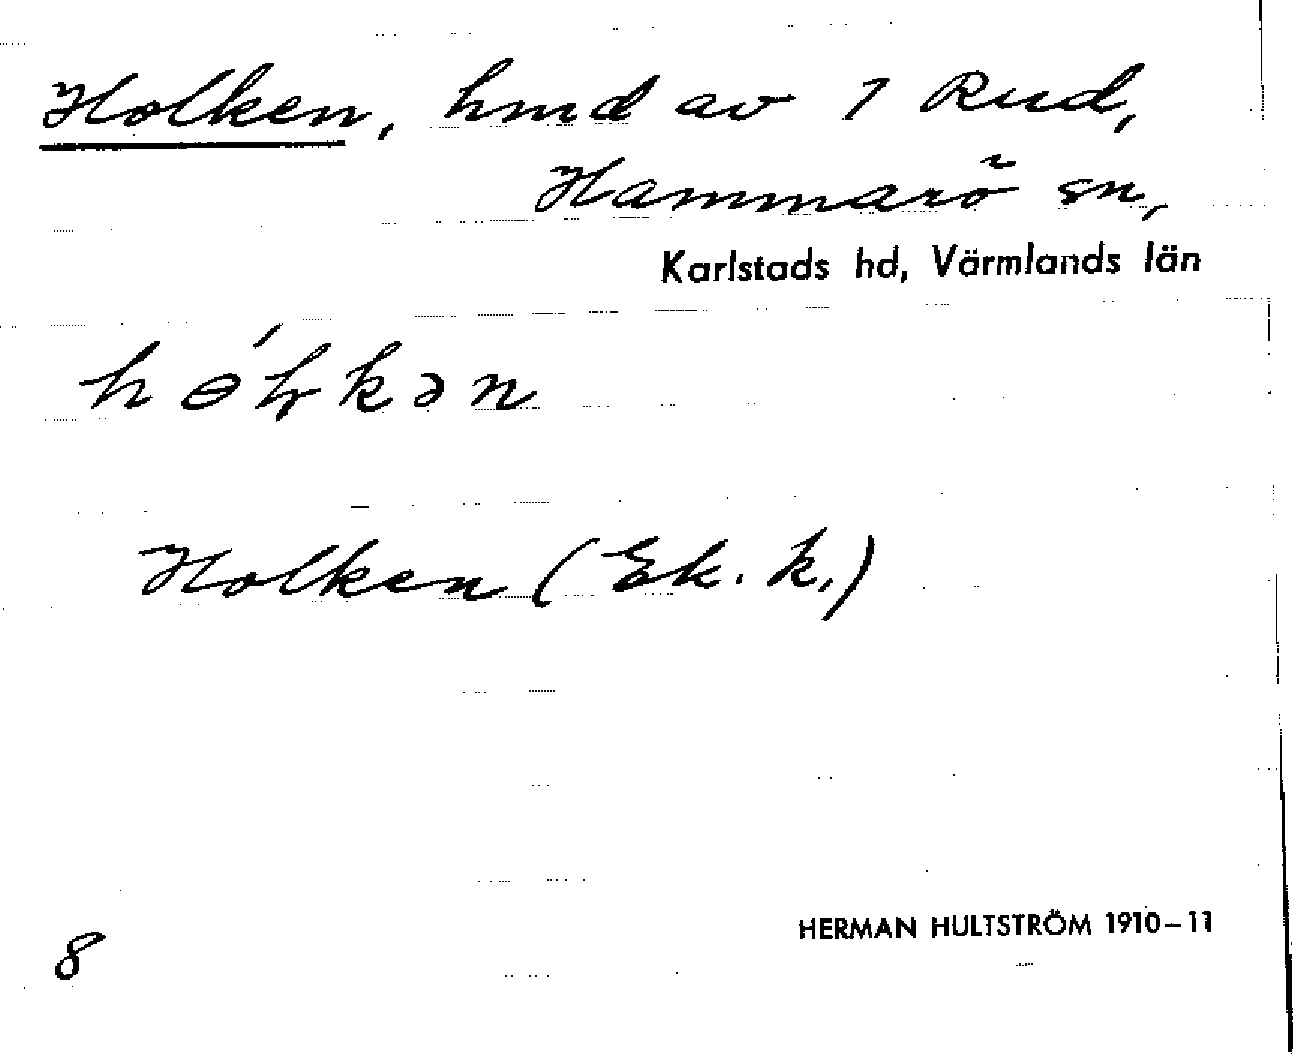 Holken, hmd av 1 Rud,
Hammarö sn,
Karlstads hd, Värmlands län
hɵ́ɽkən
Holken (Ek. k.)
HERMAN HULTSTRÖM 1910–11
8